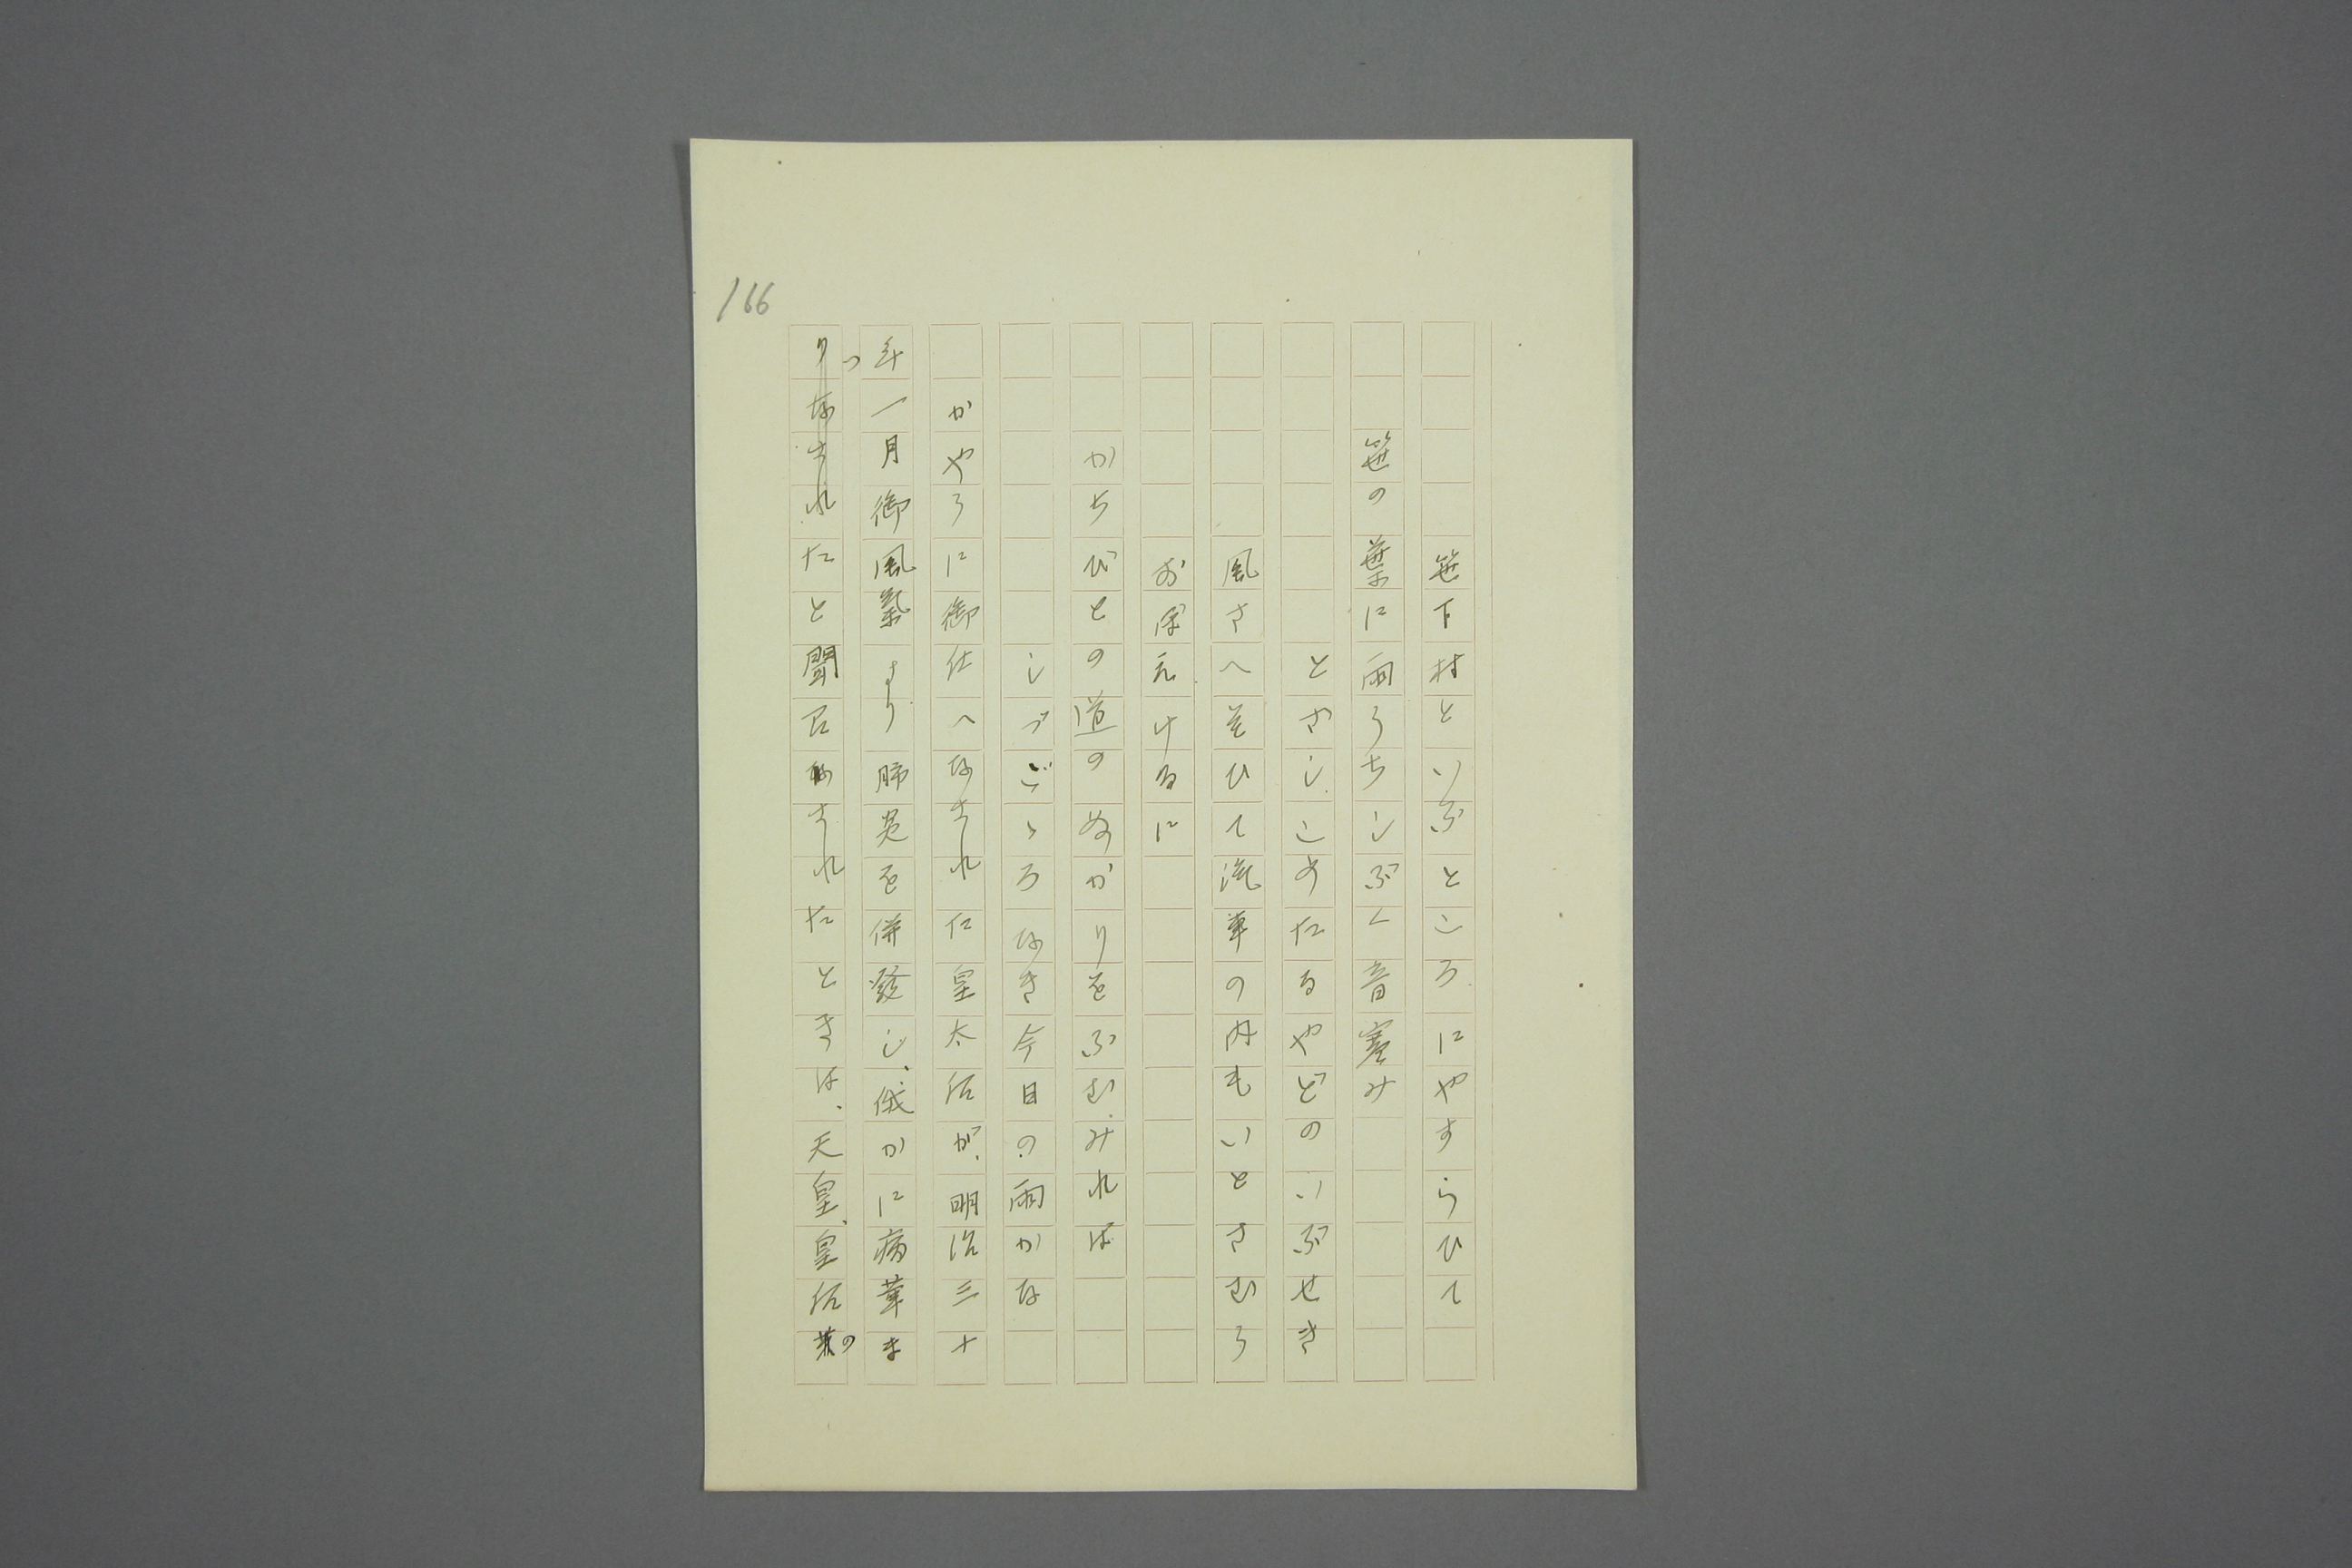 166
笹下村といふところにやすらひて
笹の葉に雨うちしぶく音寒み
とざしこめたるやどのいぶせき
風さへそひて汽車の内もいとさむう
おぼえけるに
かちびとの道のぬかりをふむみれば
しづごゝろなき今日の雨かな
かやうに御仕へなされた皇太后が、明治三十
年一月御風氣より肺炎を併發し、俄かに病革ま
つたと聞召されたときは、天皇、皇后の